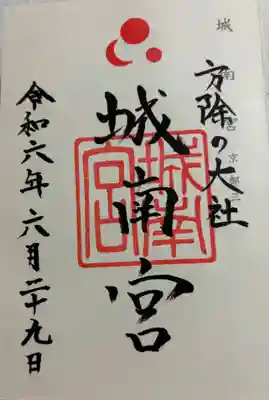 方除の大社
城南宮
城南宮印
令和六年六月二十九日